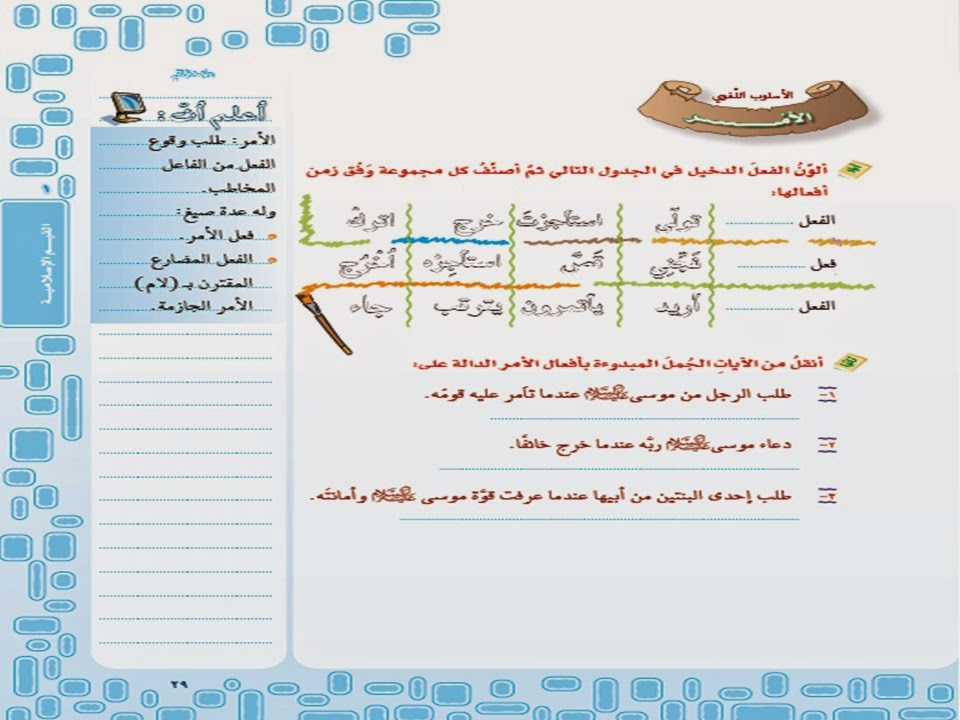 الأسلوب اللّغوي
الأمـــر
ألوّنُ الفعلَ الدخيل في الجدول التالي ثمّ أصنّفُ كل مجموعة وَفْق زمن
أفعالها:
الفعل ........ تولّى استأجرْتَ خرج اتركْ
فعل ........ نَجِّني قَصَّ استأجِرْه اُخْرُج
الفعل ........ أريد يأتمرون يترقب جاء
أنقلُ من الآياتِ الجُملَ المبدوءة بأفعال الأمر الدالة على:
١- طلب الرجل من موسى عليه السلام عندما تآمر عليه قومُه.
٢- دعاء موسى عليه السلام ربَّه عندما خرج خائفًا.
٣- طلب إحدى البنتين من أبيها عندما عرفت قوَّة موسى عليه السلام وأمانتَه.
أعلم أنّ:
الأمر: طلب وقوع
الفعل من الفاعل
المخاطب.
وله عدة صيغ:
فعل الأمر.
الفعل المضارع
المقترن بـ (لام)
الأمر الجازمة.
القيم الإسلامية
٢٩